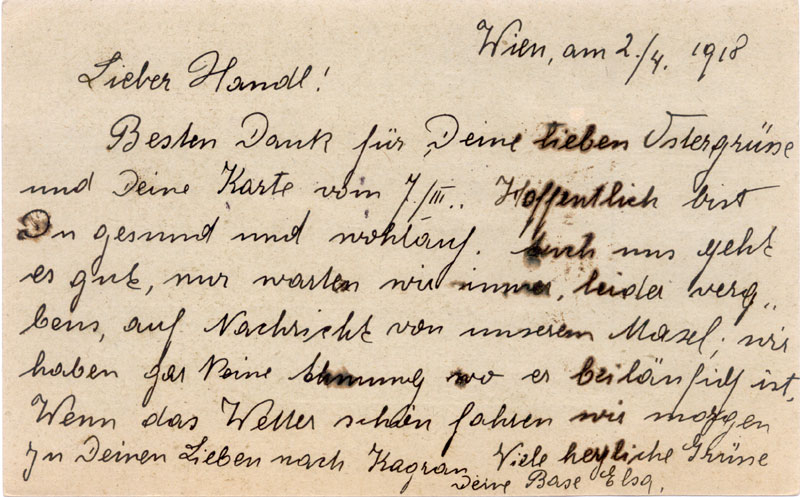 Wien, am 2./4. 1918
Lieber Handl!
Besten Dank für Deine lieben Ostergrüsse
und Deine Karte vom 7./III.. Hoffentlich bist
Du gesund und wohlauf. Auch uns geht
es gut, nur warten wir immer, leider verg„
bens, auf Nachricht von unserem Masel; wir
haben gar keine Ahnung wo er beiläufich ist.
Wenn das Wetter schön fahren wir morgen
zu Deinen Lieben nach Kagran. Viele herzliche Grüsse
Deine Base Elsa.